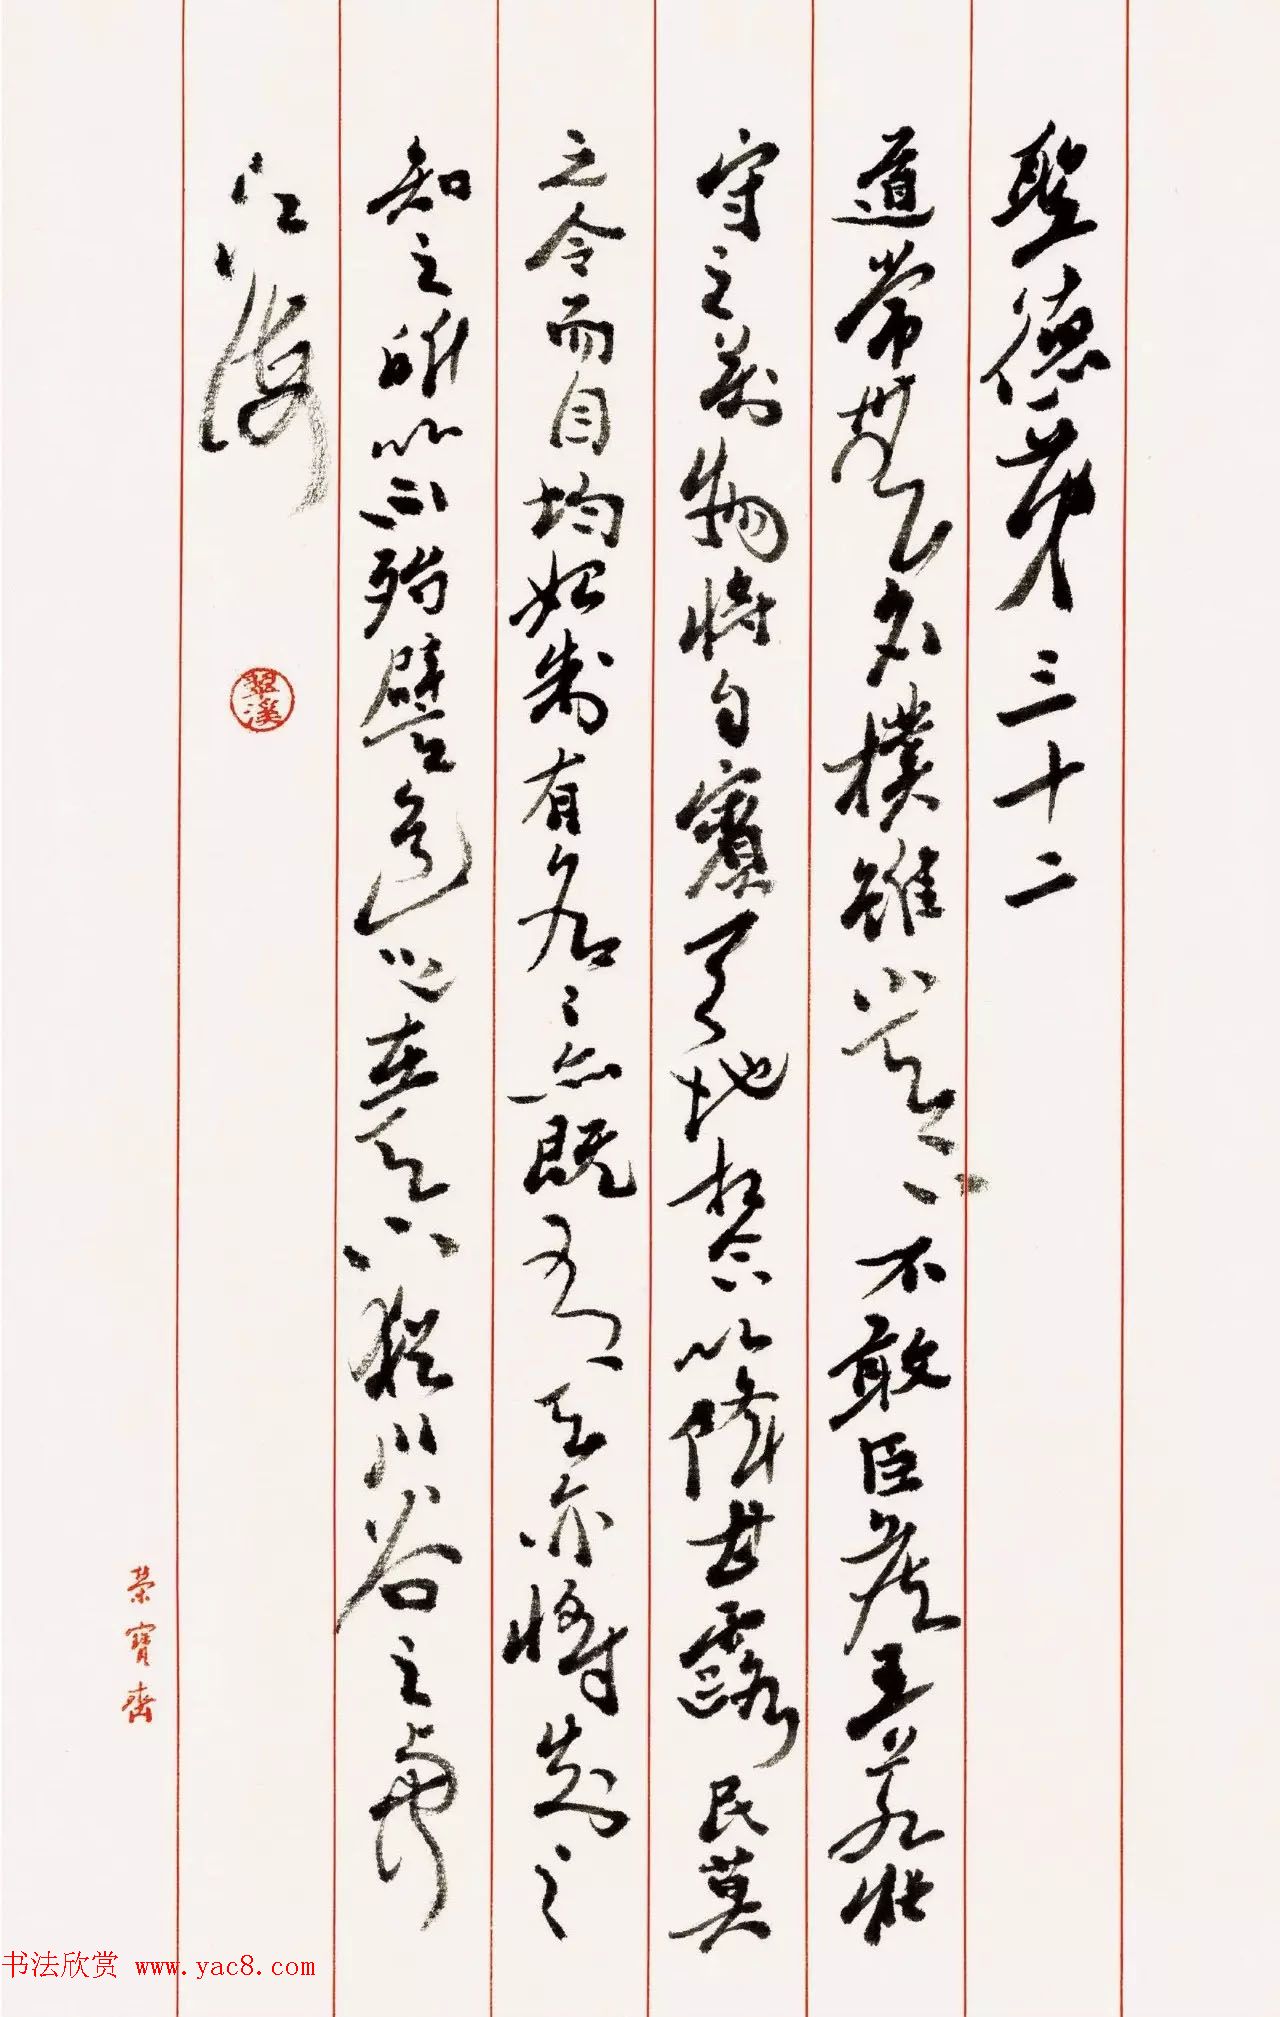 聖德第三十二
道常無名樸雖小天下不敢臣侯王若能
守之萬物將自賓天地相合以降甘露民莫
之令而自均始制有名々亦既有天亦將知之
知之所以不殆譬道之在天下猶川谷之與
江海
榮寶齋
书法欣赏 www.yac8.com